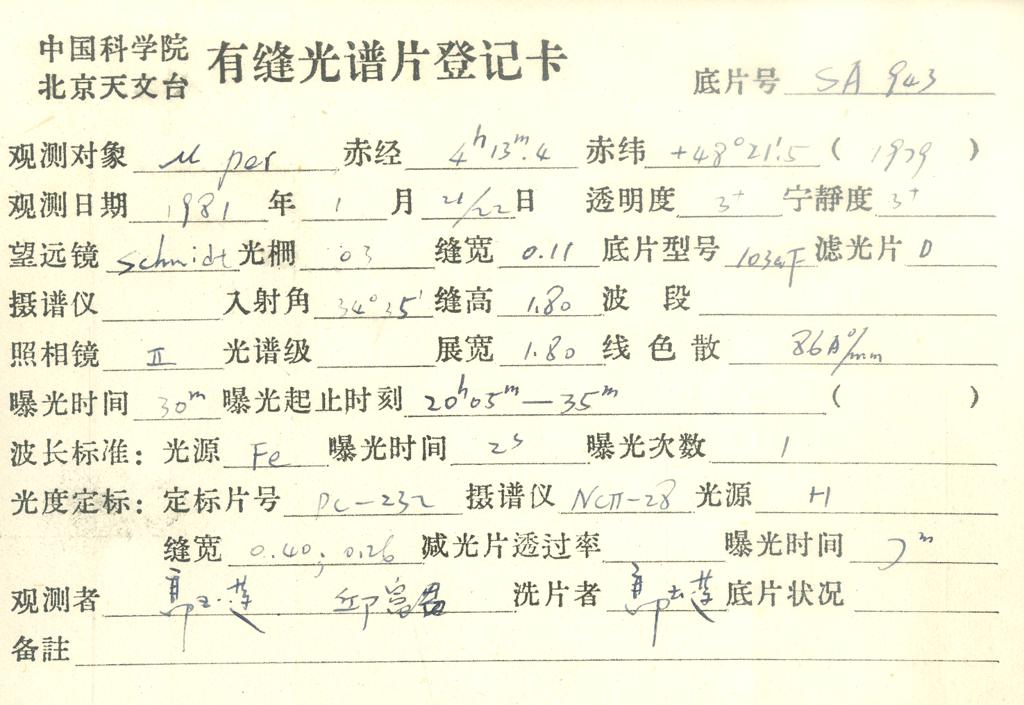 中国科学院
北京天文台
有缝光谱片登记卡
底片号 SA 943
观测对象 μ per 赤经 4ʰ13ᵐ.4 赤纬 +48°21'.5 ( 1979 )
观测日期 1981 年 1 月 21/22 日 透明度 3⁺ 宁静度 3⁺
望远镜 Schmidt 光栅 03 缝宽 0.11 底片型号 103aF 滤光片 D
摄谱仪 入射角 34°35' 缝高 1.80 波段
照相镜 II 光谱级 展宽 1.80 线色散 86A°/mm
曝光时间 30ᵐ 曝光起止时刻 20ʰ05ᵐ—35ᵐ ( )
波长标准: 光源 Fe 曝光时间 2ˢ 曝光次数 1
光度定标: 定标片号 PC-232 摄谱仪 光源 H
缝宽 0.40; 0.26 减光片透过率 曝光时间
观测者 洗片者 底片状况
备註